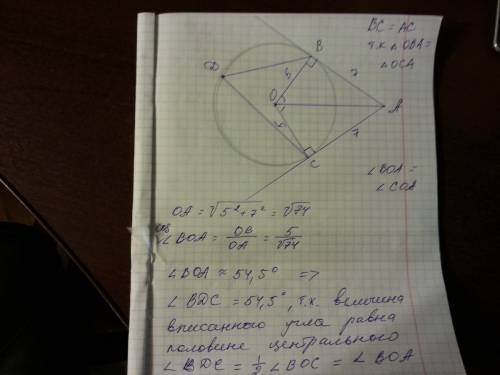 BC = AC
т.к. ∠OBA =
∠OCA
B
D
5
7
O
A
5
7
C
∠BOA =
∠COA
OA = √5² + 7² = √74
cos
∠BOA = OB/OA = 5/√74
∠BOA ≈ 54,5° =>
∠BDC = 54,5°, т.к. величина
вписанного угла равна
половине центрального
∠BDC = 1/2 ∠BOC = ∠BOA